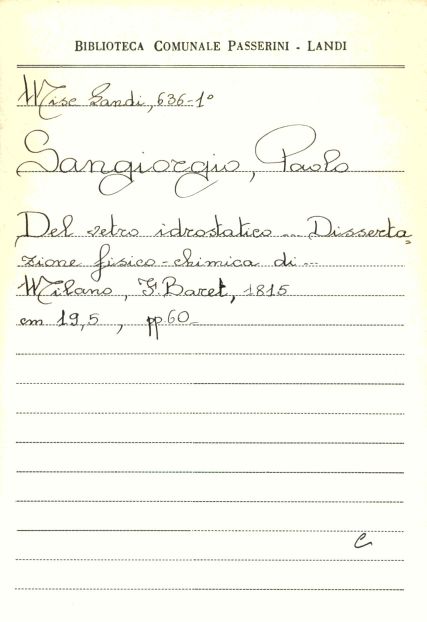 BIBLIOTECA COMUNALE PASSERINI - LANDI
Misc Landi, 636-1°
Sangiorgio, Paolo
Del vetro idrostatico ... Disserta=
zione fisico-chimica di ...
Milano, F. Baret, 1815
cm 19,5 , pp 60_
C